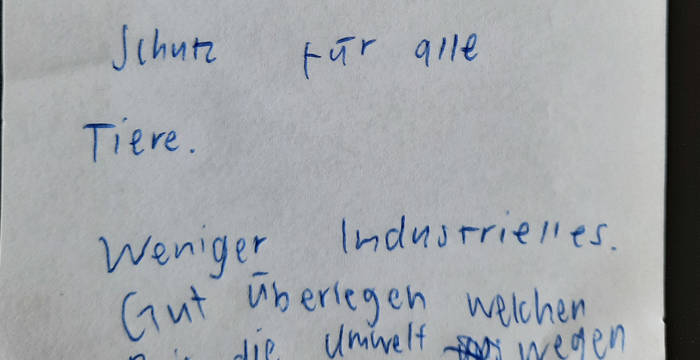 Schutz für alle
Tiere.
Weniger Industrielles.
Gut überlegen welchen
die Umwelt wegen